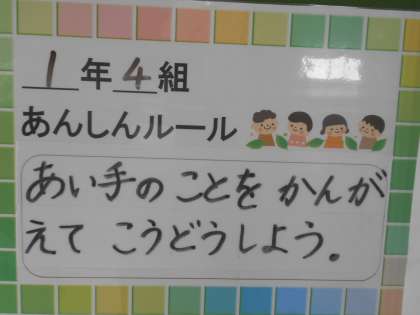 1年4組
あんしんルール
あい手の ことを かんが
えて こうどうしよう.